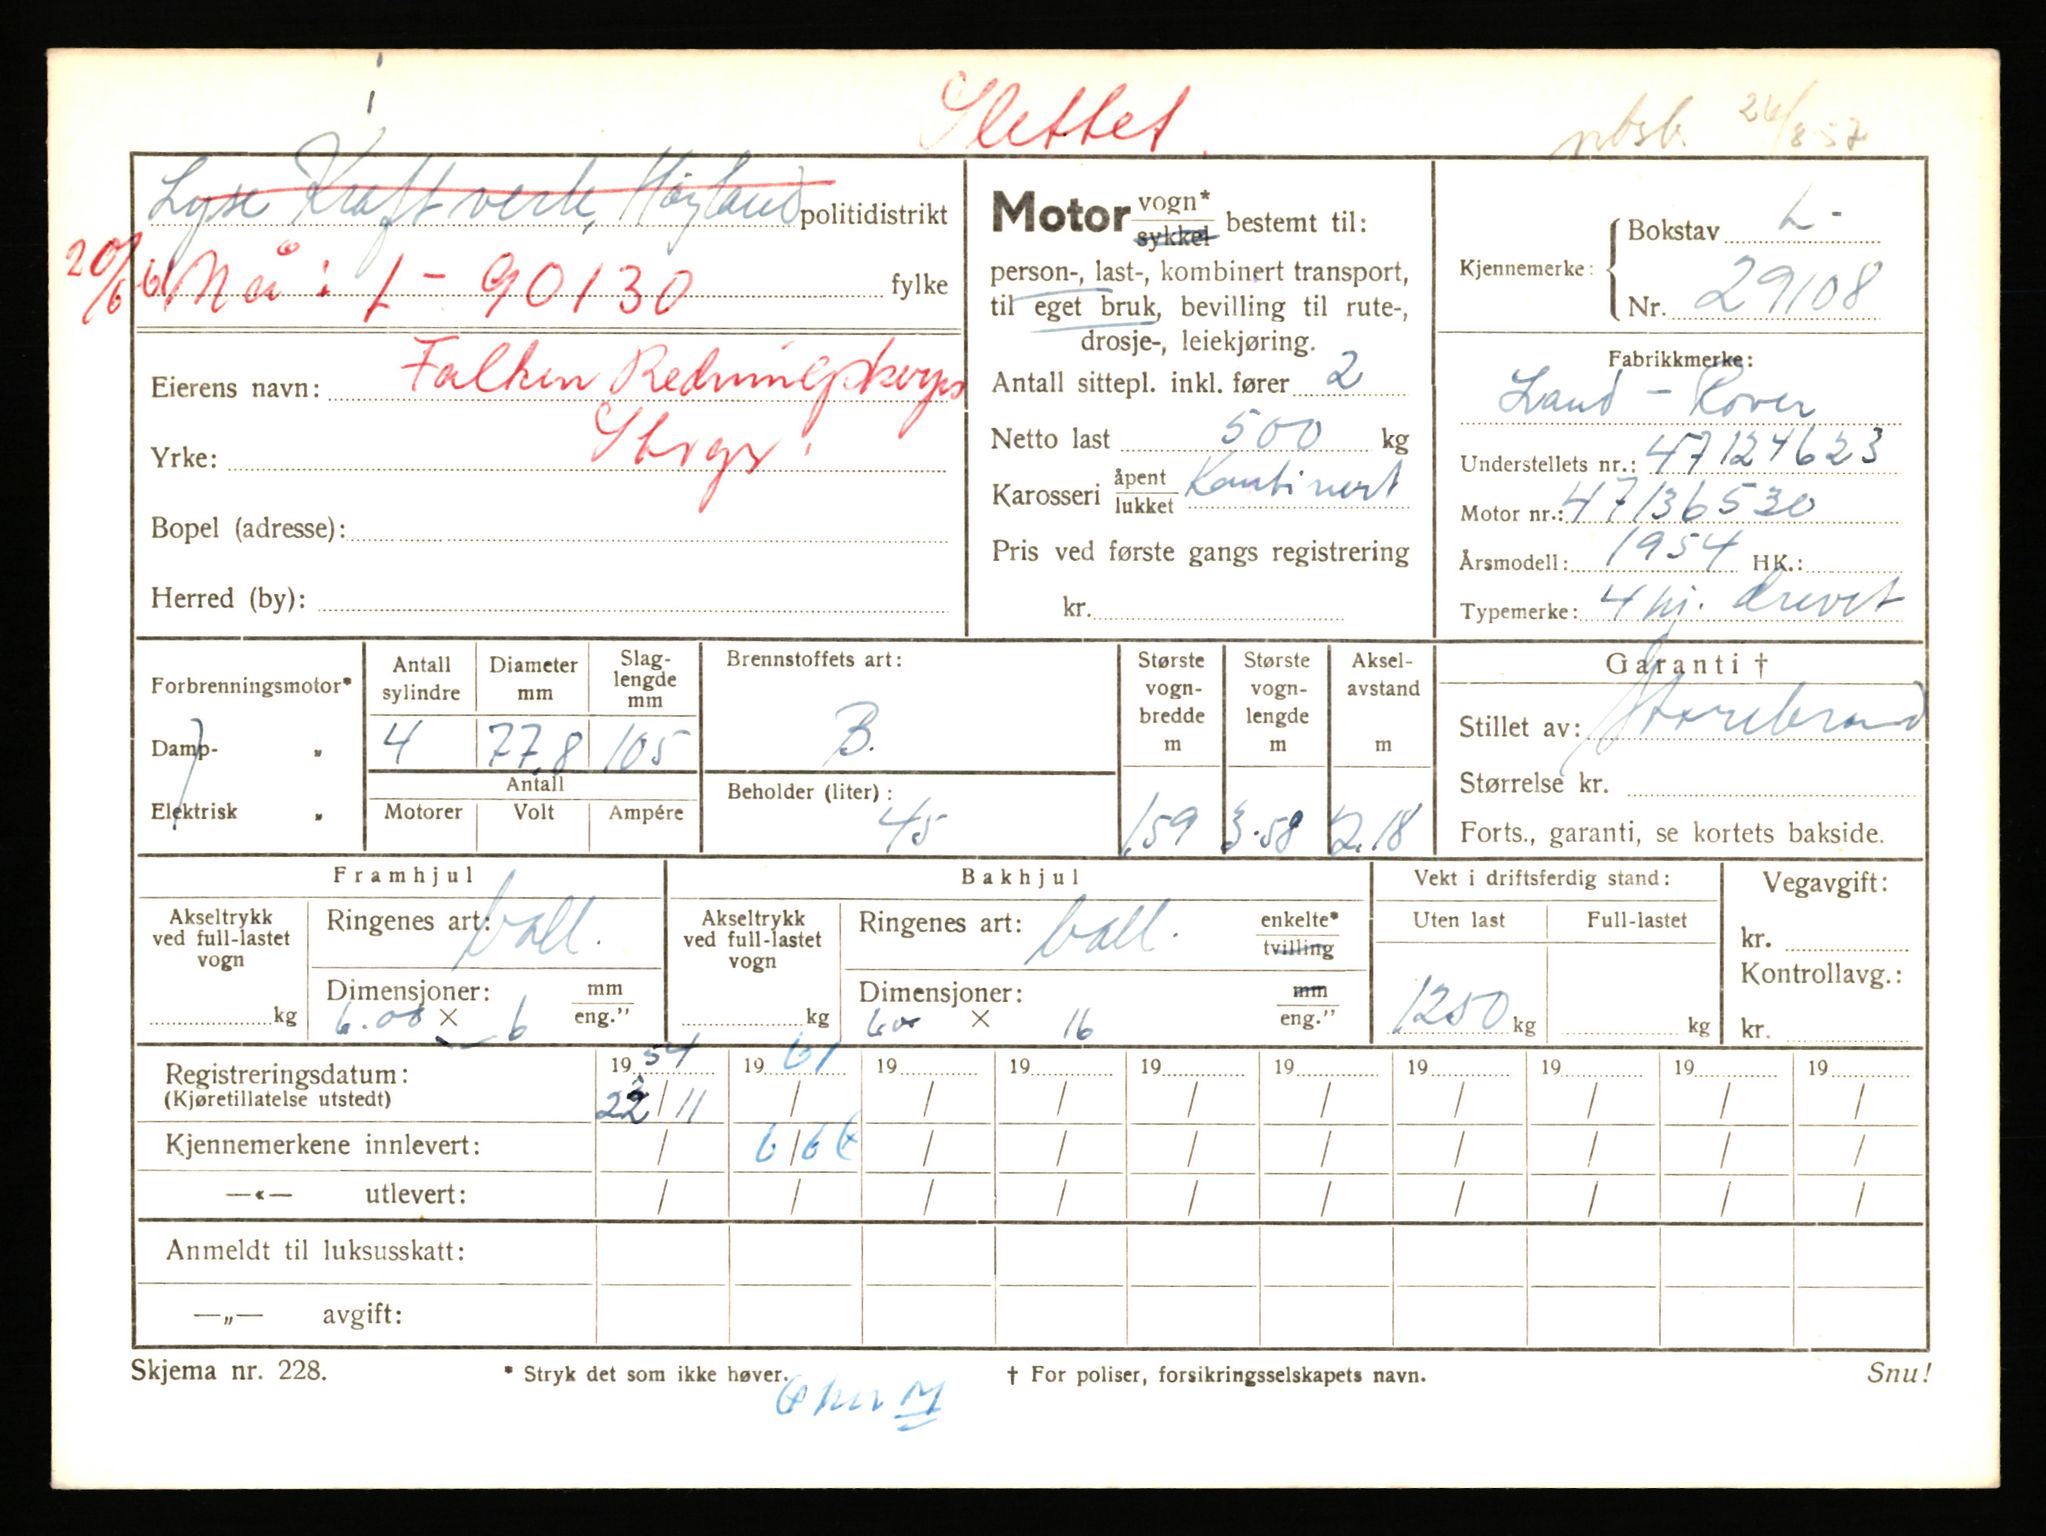 Slettet.
26/8 57
Lyse Kraftverk, Høyland politidistrikt
20/6 61 Nå: L - 90130 fylke
Eierens navn: Falken Redningskorps
Yrke:
Bopel (adresse):
Herred (by):
Motor vogn* sykkel bestemt til:
person-, last-, kombinert transport,
til eget bruk, bevilling til rute-,
drosje-, leiekjøring.
Antall sittepl. inkl. fører 2
Netto last 500 kg
Karosseri åpent lukket Kombinert
Pris ved første gangs registrering
kr.
Kjennemerke: Bokstav L-
Nr. 29108
Fabrikkmerke:
Land-Rover
Understellets nr.: 47124623
Motor nr.: 47136530
Årsmodell: 1954 HK.:
Typemerke: 4 hj. drevet
Forbrenningsmotor*
Damp- "
Elektrisk "
Antall sylindre 4
Diameter mm 77,8
Slaglengde mm 105
Antall
Motorer Volt Ampére
Brennstoffets art: B.
Beholder (liter): 45
Største vognbredde m 1,59
Største vognlengde m 3.58
Akselavstand m 2.18
Garanti †
Stillet av: Storebrand
Størrelse kr.
Forts., garanti, se kortets bakside.
Framhjul
Akseltrykk ved full-lastet vogn kg
Ringenes art: ball.
Dimensjoner: mm eng."
6.00 X 6
Bakhjul
Akseltrykk ved full-lastet vogn kg
Ringenes art: ball. enkelte* tvilling
Dimensjoner: mm eng."
600 X 16
Vekt i driftsferdig stand:
Uten last Full-lastet
1250 kg kg
Vegavgift:
kr.
Kontrollavg.:
kr.
Registreringsdatum: 19 54 19 61 19 19 19 19 19 19 19 19
(Kjøretillatelse utstedt) 22/11 / / / / / / / / /
Kjennemerkene innlevert: / 6/6 / / / / / / / /
—«— utlevert: / / / / / / / / / /
Anmeldt til luksusskatt:
—„— avgift:
Skjema nr. 228. * Stryk det som ikke høver. † For poliser, forsikringsselskapets navn. Snu!